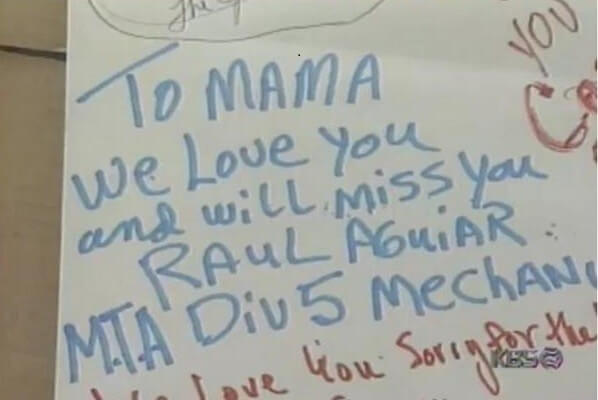 The
YOU
TO MAMA
We Love You
and will miss you
RAUL AGUIAR
MTA Div 5 Mechani
Love You Sorry for the